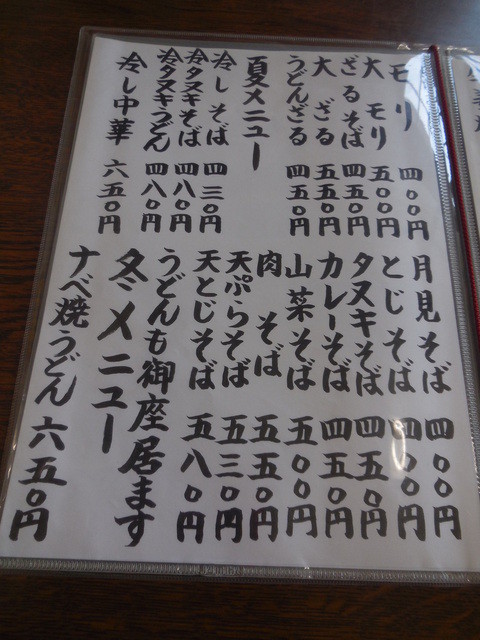 モリ 四〇〇円
大モリ 五〇〇円
ざるそば 四五〇円
大ざる 五五〇円
うどんざる 四五〇円
夏メニュー
冷しそば 四三〇円
冷タヌキそば 四八〇円
冷タヌキうどん 四八〇円
冷し中華 六五〇円
月見そば 四〇〇円
とじそば 四〇〇円
タヌキそば 四五〇円
カレーそば 四五〇円
山菜そば 五〇〇円
肉そば 五五〇円
天ぷらそば 五三〇円
天とじそば 五八〇円
うどんも御座居ます
冬メニュー
ナベ焼うどん 六五〇円